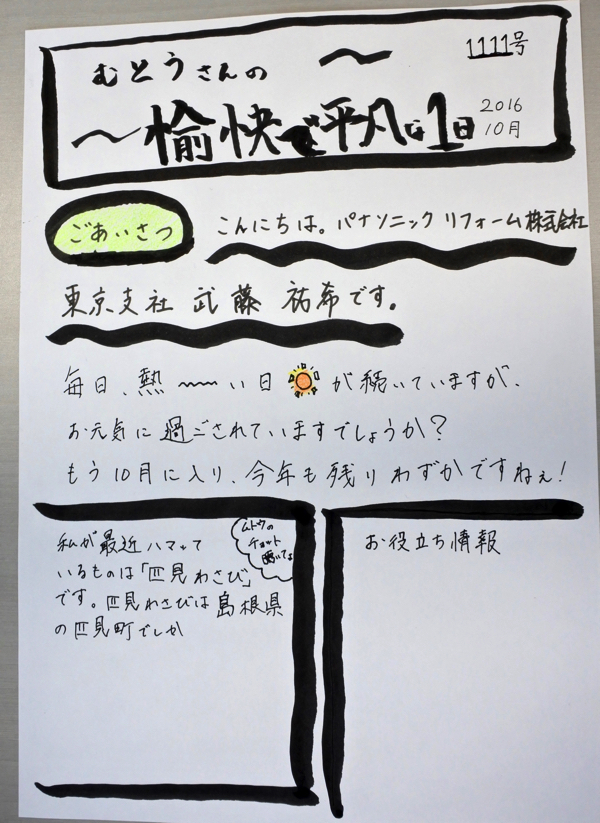 むとうさんの
1111号
～愉快で平凡な1日～
2016
10月
ごあいさつ
こんにちは。パナソニック リフォーム株式会社
東京支社 武藤 祐希です。
毎日、熱〜〜い日が続いていますが、
お元気に過ごされていますでしょうか?
もう10月に入り、今年も残りわずかですねぇ!
ムトウの
チョット
聞いてよ
私が最近ハマって
いるものは「匹見わさび」
です。匹見わさびは島根県
の匹見町でしか
お役立ち情報